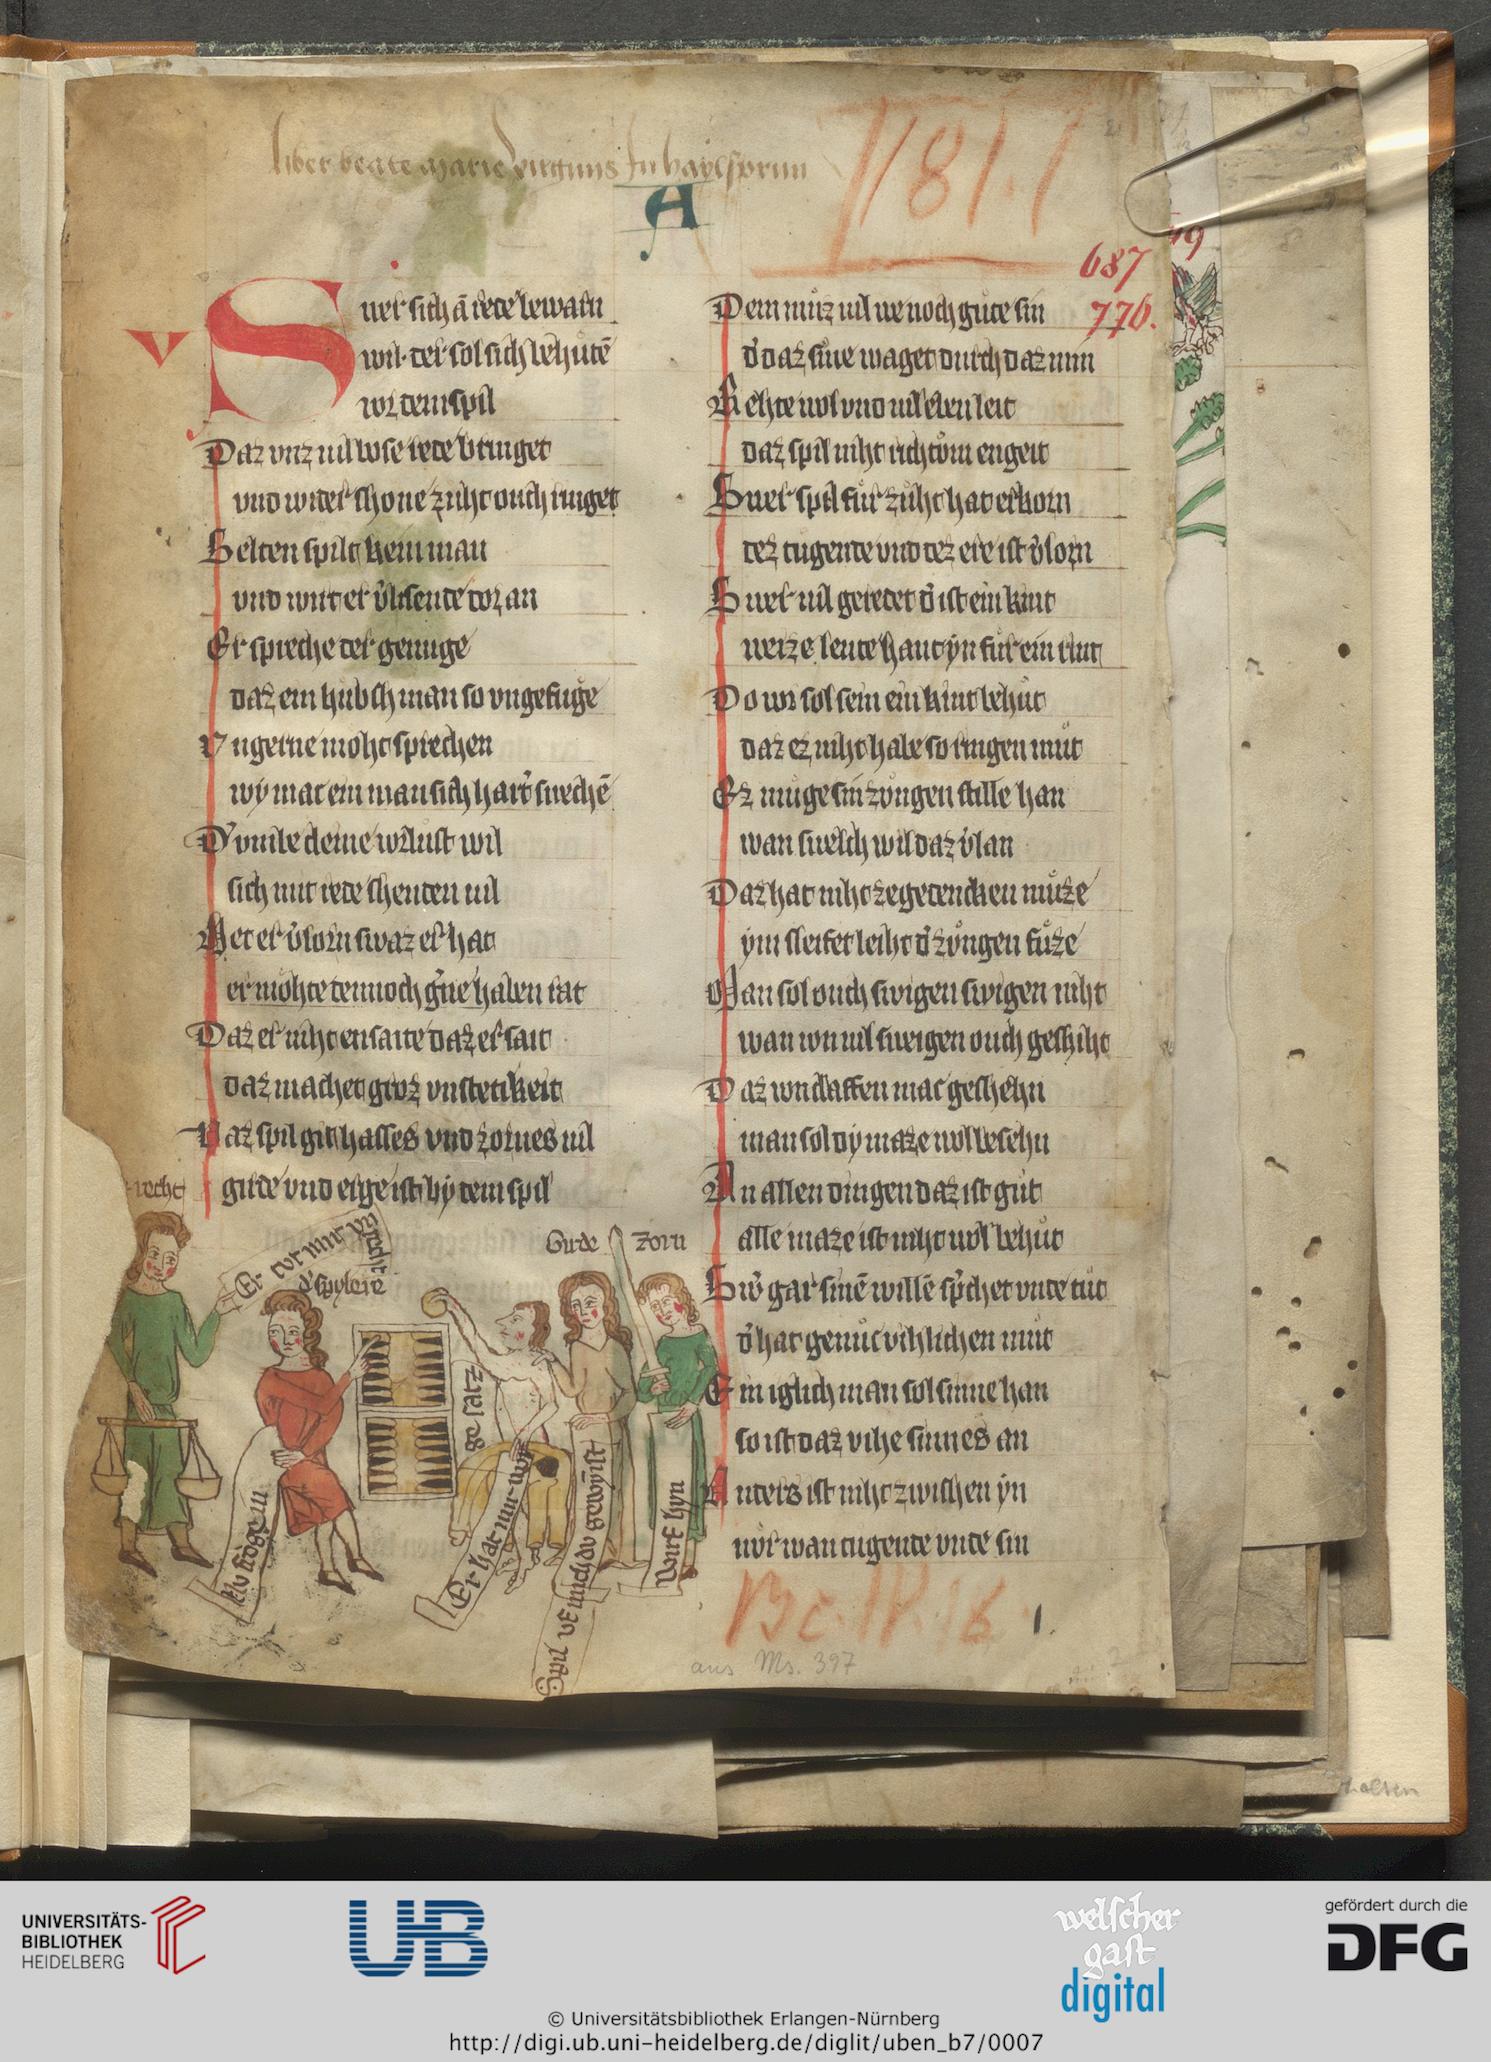 liber beate Marie virginis In haylsprun
A
1181.1
687
776.
Swer sich ā rede bewarn
wil. der sol sich behutē
vor dem spil
Daz vnz vil bose rede bringet
vnd wider schone zuht ouch ringet
Selten spilt kein man
vnd wirt er v̓lisende dor an
Er spreche der genuge
daz ein hubsch man so vngefuge
Vngerne moht sprechen
wy mac ein man sich hart̓ swechē
D
sich mit rede schenden vil
Het er v̓lorn swaz er hat
er mohte dennoch g̓ne haben rat
Daz er niht ensaite daz er sait
daz machet groz vnstetikeit
Daz spil git hasses vnd zornes vil
girde vnd erge ist by dem spil
Dem muz vil we noch gute sin
d̓ daz sine waget durch daz min
Rehte wol vnd vil eben leit
daz spil niht richtům engeit
Swer spil fůr zůht hat erkorn
dez tugende vnd dez ere ist v̓lorn
Swer vil geredet d̓ ist ein kint
weize leute hant yn fůr ein rint
Do von sol sein ein kint behůt
daz ez niht habe so ringen můt
Ez můge sin zůngen stille han
wan swelch wil daz v̓lan
Daz hat niht ze gedencken můze
ym sleifet leiht d̓ zůngen fůze
Man sol ouch swigen swigen niht
wan von vil sweigen ouch geshiht
Daz von claffen mac geshehn
man sol dy maze wol besehn
An allen dingen daz ist gůt
alle maze ist niht wol behůt
Sw̓ gar sinē willē sp̓chet vnde tůt
d̓ hat genůc vihlichen můt
Ein iglich man sol sinne han
so ist daz vihe sinnes an
Anders ist niht zwischen yn
nůr wan tugende vnde sin
recht
Er tot mir vnrecht
d̓ spylere
Girde
zorn
ge satz
Er hat mir
Spil vē mich dv gewinst
Wirf hyn
Bc. IV. 16
1.
aus Ms. 397
UNIVERSITÄTS-
BIBLIOTHEK
HEIDELBERG
UB
welscher
gast
digital
gefördert durch die
DFG
© Universitätsbibliothek Erlangen-Nürnberg
http://digi.ub.uni-heidelberg.de/diglit/uben_b7/0007